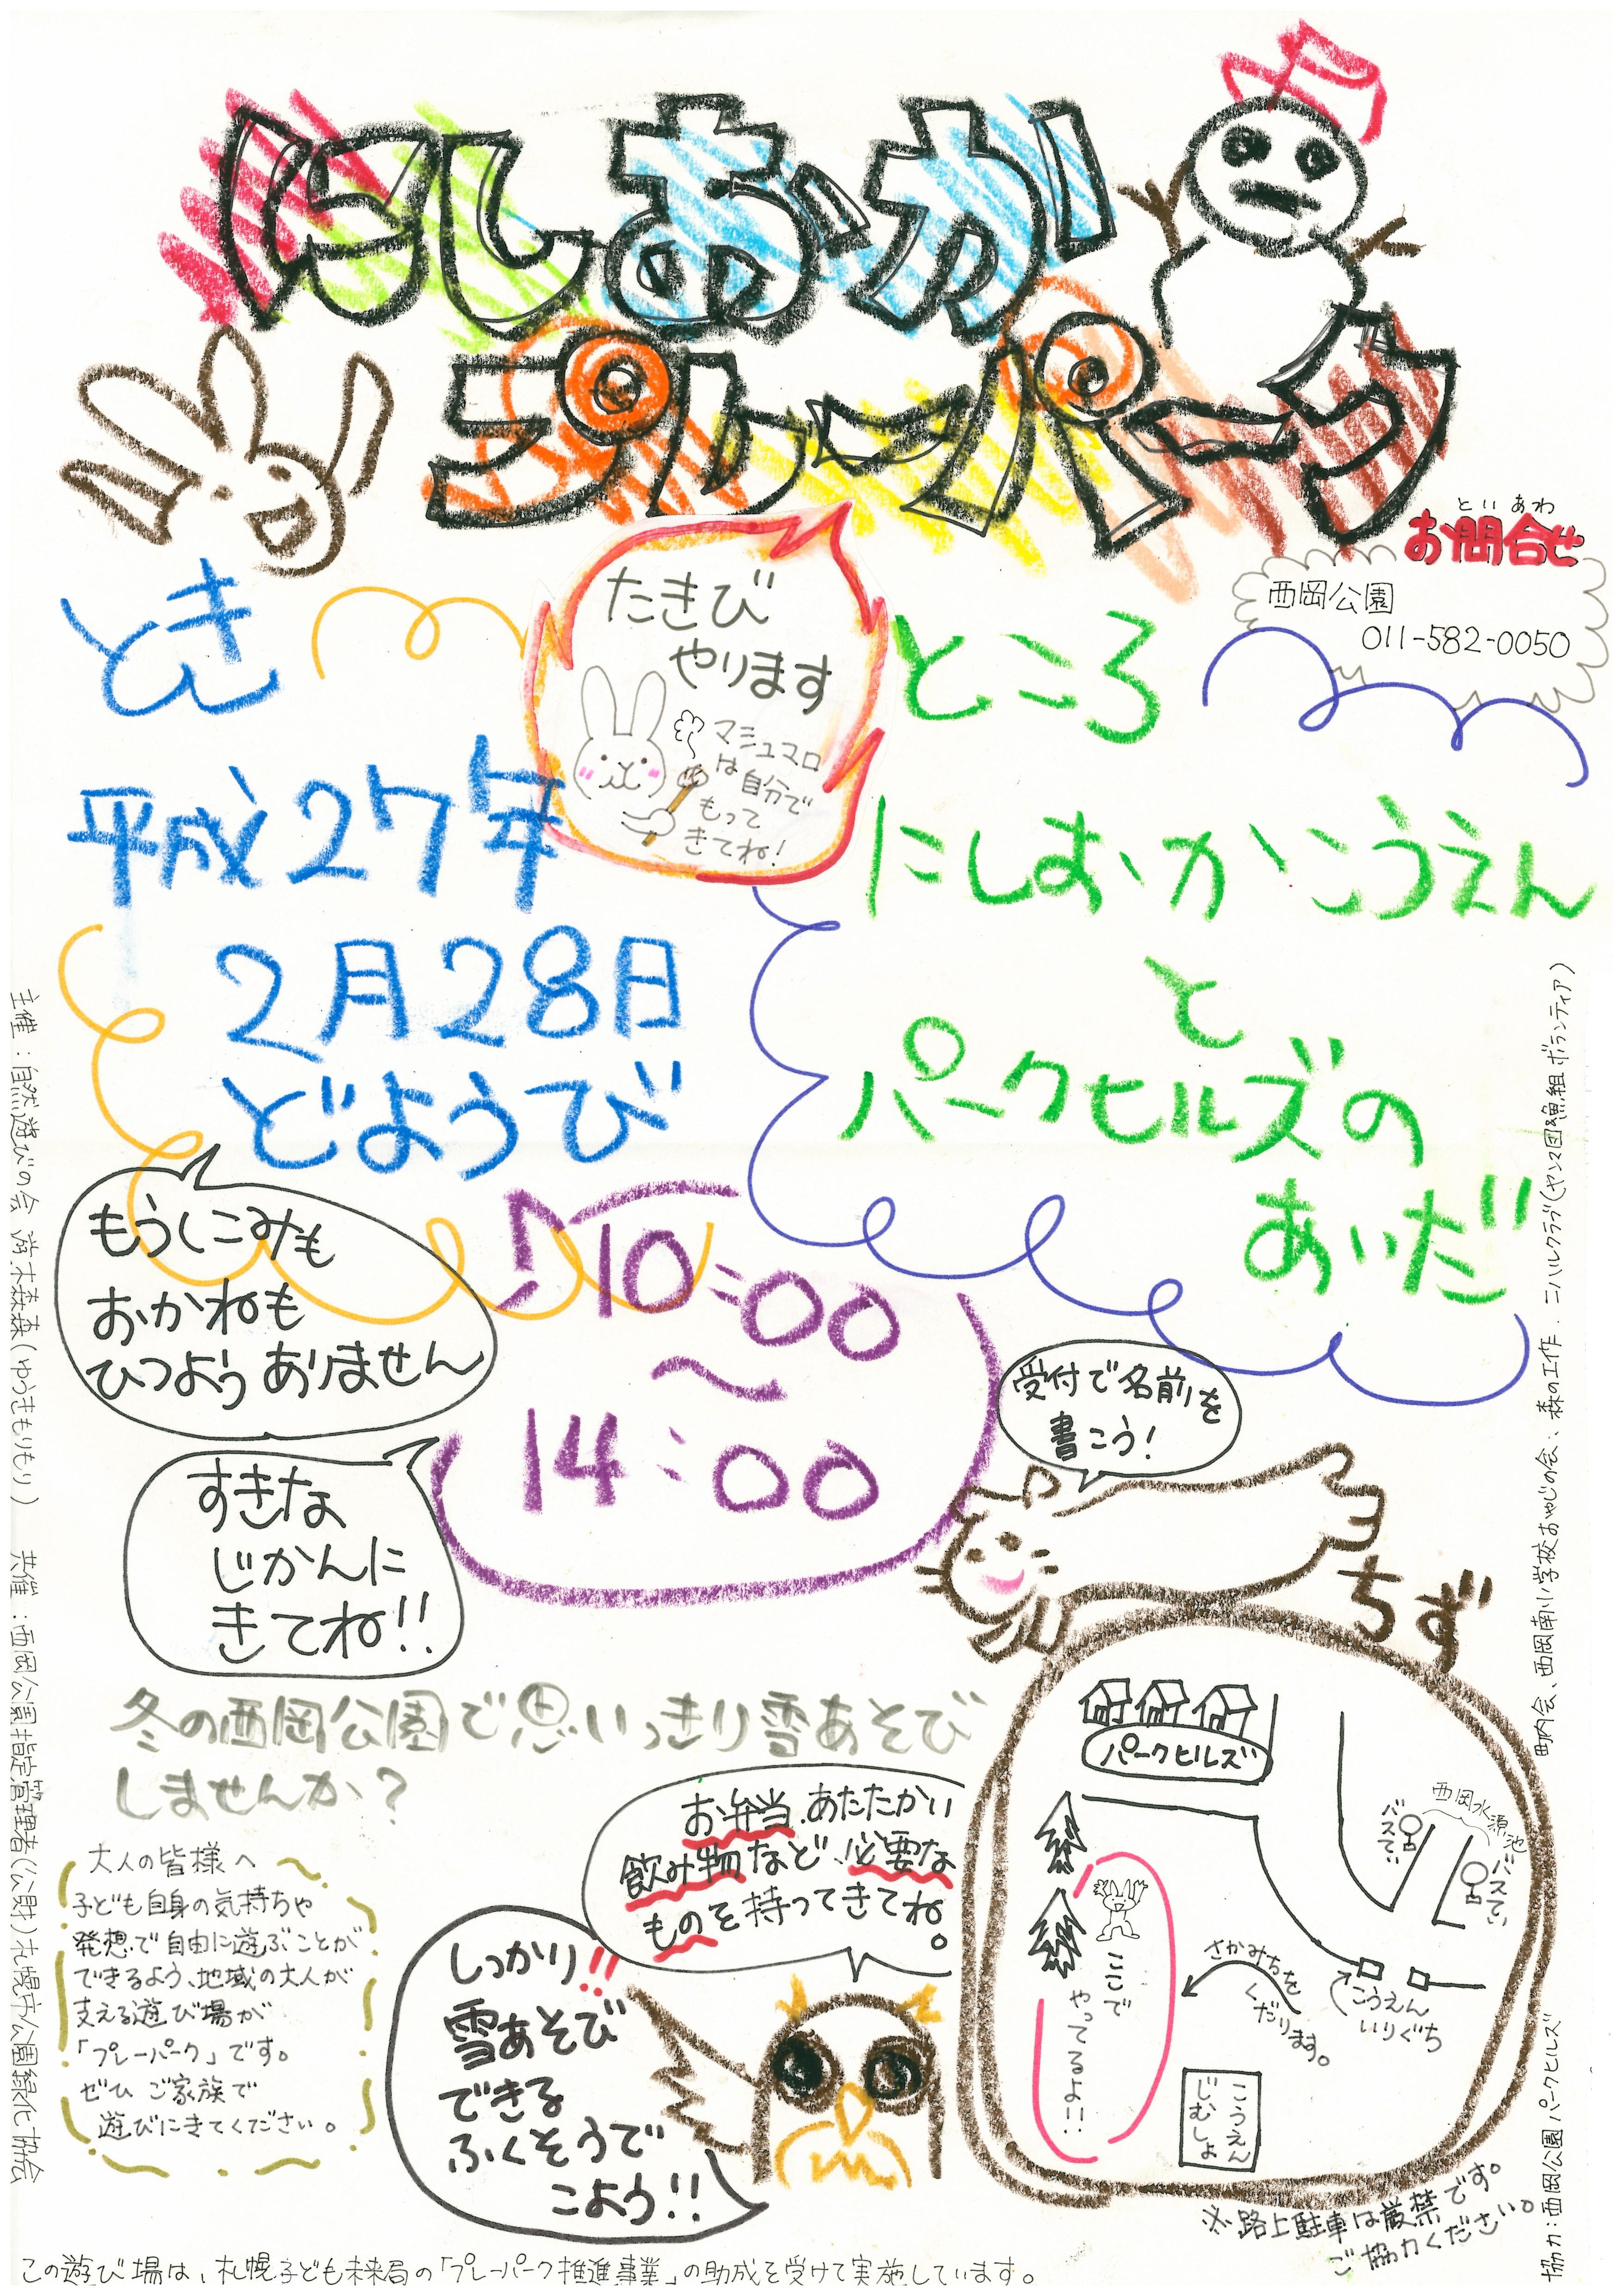 にしおか
プレーパーク
お問合せ
といあわ
西岡公園
011-582-0050
とき
平成27年
2月28日
どようび
たきび
やります
マシュマロ
は自分で
もって
きてね!
ところ
にしおかこうえん
と
パークヒルズの
あいだ
10:00
～
14:00
もうしこみも
おかねも
ひつようありません
すきな
じかんに
きてね!!
受付で名前を
書こう!
ちず
パークヒルズ
西岡水源池
バスてい
バスてい
ここで
やってるよ!!
さかみちを
くだります。
こうえん
いりぐち
こうえん
じむしょ
冬の西岡公園で思いっきり雪あそび
しませんか?
お弁当、あたたかい
飲み物など、必要な
ものを持ってきてね。
しっかり!!
雪あそび
できる
ふくそうで
こよう!!
大人の皆様へ
子ども自身の気持ちや
発想で自由に遊ぶことが
できるよう、地域の大人が
支える遊び場が
「プレーパーク」です。
ぜひ ご家族で
遊びにきてください。
※路上駐車は厳禁です。
ご協力ください。
主催:自然遊びの会 游木森森(ゆうきもりもり) 共催:西岡公園指定管理者(公財)札幌市公園緑化協会
協力:西岡公園パークヒルズ町内会、西岡南小学校おやじの会、森の工作、ニハルクラブ(ヤンマ団&魚組ボランティア)
この遊び場は、札幌子ども未来局の「プレーパーク推進事業」の助成を受けて実施しています。